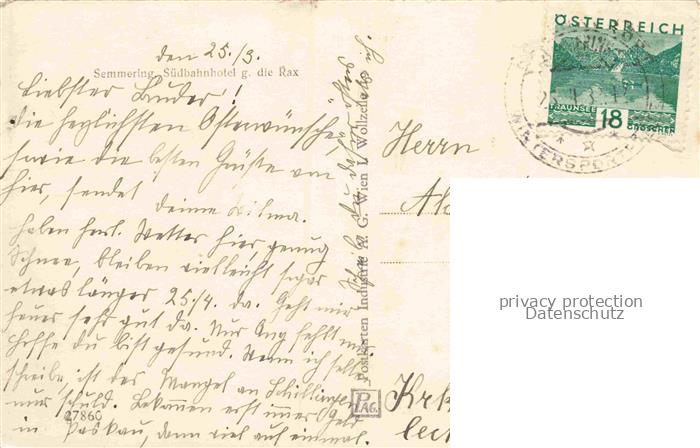 den 25./3.
Semmering, Südbahnhotel g. die Rax
Liebster Bruder!
die herzlichsten Osterwünsche
sowie die besten Grüße von
hier, sendet deine Vilma.
haben herl. Wetter hier, genug
Schnee, bleiben vielleicht sogar
etwas länger 25/4. da. Geht mir
heuer sehr gut da. Nur Ang fehlt mir
Hoffe du bist gesund. Wenn ich selten
schreibe, ist der Mangel an Schillingen
nur schuld. Bekommen erst immer Geld
in Paskau, dann viel auf einmal.
27860
Postkarten Industrie A. G. Wien I, Wollzeile
PAG.
Herrn
Al
Krk
ÖSTERREICH
TRAUNSEE
18
GROSCHEN
WINTERSPORT
privacy protection
Datenschutz